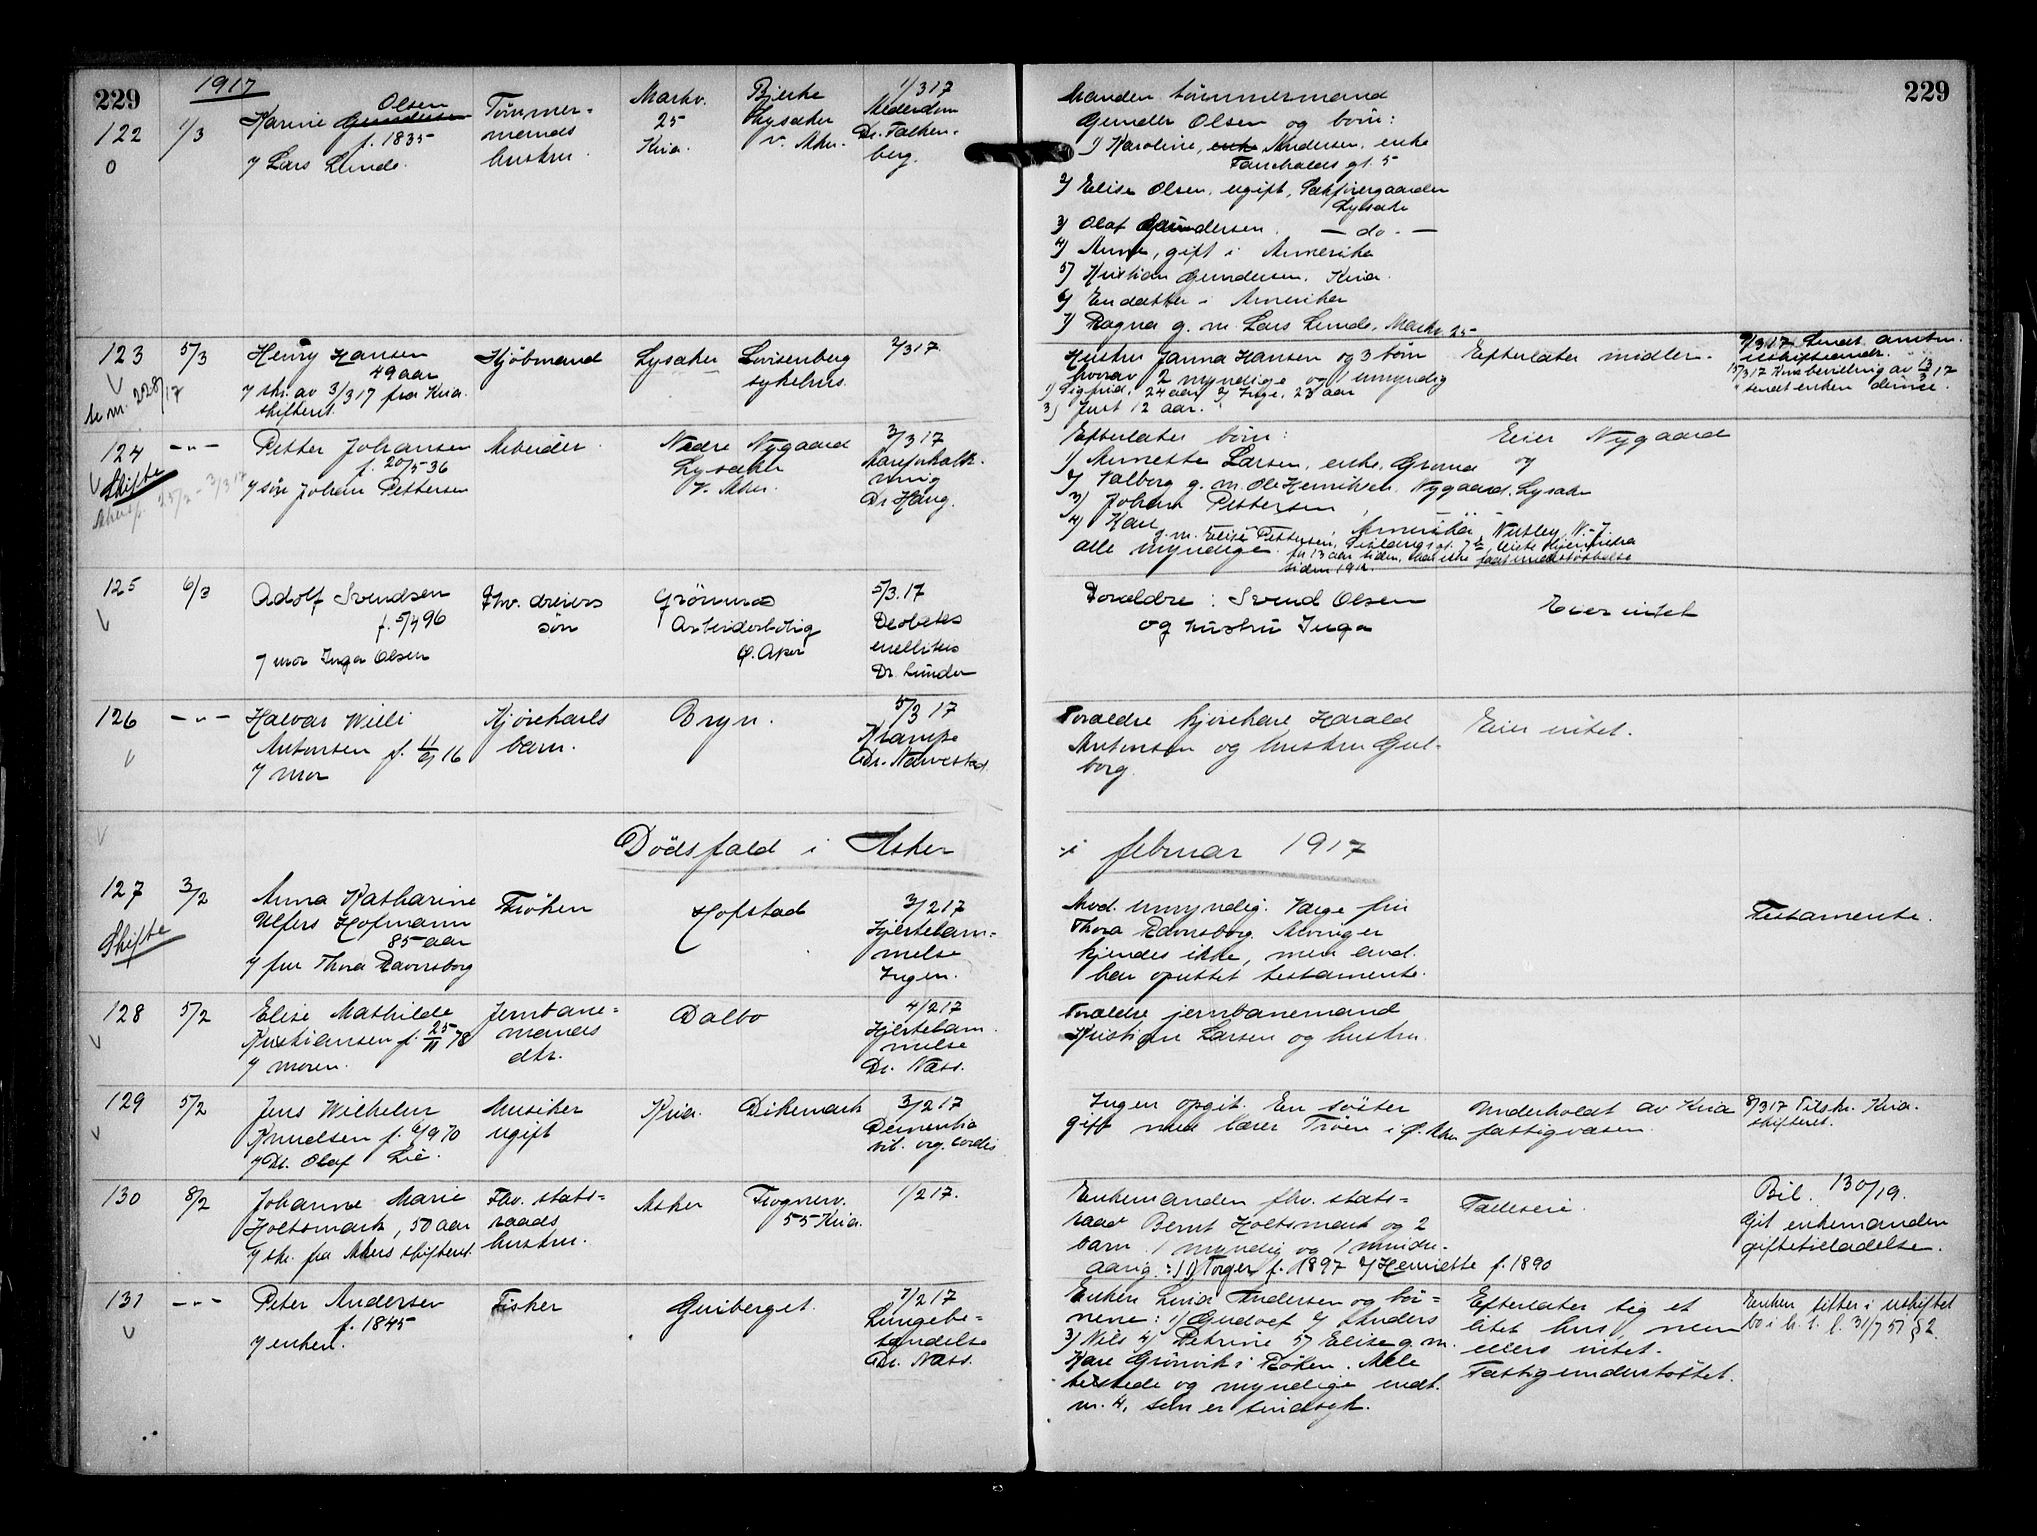 229
1917
122
1/3
Karine Olsen Gundersen
f. 1835
v/ Lars Lunde.
0
Tömmer-
mands
hustru.
Markv.
25
Kria.
Bjerke
Lysaker
v. Aker.
1/3 17
Alderdom
Dr. Falken-
berg.
123
5/3
Henry Hansen
49 aar
v/ skr. av 3/3 17 fra Kria.
skifteret.
Kjöbmand
Lysaker
Lovisenberg
sykehus.
2/3 17
124
— " —
Petter Johansen
f. 20/5 36
v/ sön Johan Pettersen
Skifte
Arbeider.
Nedre Nygaard
Lysaker
V. Aker.
3/3 17
Aareforkalk-
ning
Dr Haug.
125
6/3
Adolf Svendsen
f. 5/7 96
v/ mor Inga Olsen
Fhv. dreiers
sön
Grönnås
Arbeiderbolig
Ø. Aker
5/3.17
Deabetes
mellitus
Dr. Lunder
126
— " —
Halvar Willi
Antonsen f. 11/9 16
v/ mor
Kjörekarls
barn.
Bryn.
5/3 17
Krampe
Dr. Nævestad.
Dödsfald i Asker
127
3/2
Anna Katharine
Ulfers Hofmann
85 aar
v/ fru Thora Ravnsborg
Skifte
Fröken
Hofstad
3/2 17
Hjertelam-
melse
Ingen.
128
5/2
Elise Mathilde
Kristiansen f. 25/11 78
v/ moren.
Jernbane-
mands
dtr.
Dalbo
4/2 17
Hjertelam.
melse
Dr. Næss.
129
5/2
Jens Wilhelm
Knudsen f. 6/9 70
v/ Dr. Olaf Lie.
Musiker
ugift
Kria.
Dikemark
3/2 17
Dementia
vit. org. cordis
130
8/2
Johanne Marie
Holtsmark, 50 aar
v/ skr. fra Akers skifteret.
Fhv. stats-
raads
hustru.
Asker
Frognerv.
55 Kria.
1/2 17.
131
— " —
Peter Andersen
f. 1845
v/ enken.
Fisker
Guiberget.
7/2 17
Lungebe-
tændelse
Dr. Næss.
229
Manden tömmermand
Gunder Olsen og börn:
1) Karoline, enke Andersen, enke
Fauchalds gt. 5
2) Elise Olsen, ugift, Sakförergaarden
Lysaker
3) Olaf Gundersen. — do. —
4) Anna, gift i Amerika
5) Kristian Gundersen, Kria.
6) En datter i Amerika
7) Ragna g. m. Lars Lunde, Markv. 25
Hustru Janna Hansen og 3 börn
hvorav 2 myndige og 1 umyndig
1) Sigfrid, 24 aar 2) Inge, 23 aar
3) Just 12 aar.
Efterlater midler.
9/3 17 Sendt anken.
uskifteandr.
15/3 17 Kria bevilling av 13/3 17
sendt enken denne.
Efterlater börn:
1) Annette Larsen, enke, Grorud og
2) Valborg g. m. Ole Henriksen, Nygaard, Lysaker
3) Johan Pettersen
4) Karl
Amerika, Nutley N. J.
alle myndige.
g. m. Elise Pettersen,
for 13 aar siden,
siden 1912.
Eier Nygaard
Forældre: Svend Olsen
og hustru Inga
Eier intet
Forældre kjörekarl Harald
Antonsen og hustru Gul-
borg.
Eier intet.
i februar 1917
Avd. umyndig. Værge fru
Thora Ravnsborg. Arvinger
kjendes ikke, men avd.
har oprettet testamente.
Testamente.
Forældre jernbanemand
Kristian Larsen og hustru.
Ingen opgit. En söster
gift med lærer Tröen i Ø. Aker
Underholdt av Kria
fattigvæsen.
8/3 17 Tilskr. Kria.
skifteret.
Enkemanden fhv. stats-
raad Bernt Holtsmark og 2
barn 1 myndig og 1 mindre-
aarig: 1) Torger f. 1897 2) Henriette f. 1890
Fælleseie.
Bil. 130/19.
Git enkemanden
giftetilladelse.
Enken Lina Andersen og bör-
nene: 1) Gudolf 2) Anders
3) Nils 4) Petrine 5) Elise g. m.
Kare Grönvik i Röken. Alle
tilstede og myndige undt.
nr. 4, som er sindssyk.
Efterlater sig et
litet hus, men
ellers intet.
Fattigunderstöttet.
Enken sitter i uskiftet
bo i h. t. l. 31/7 51 § 2.